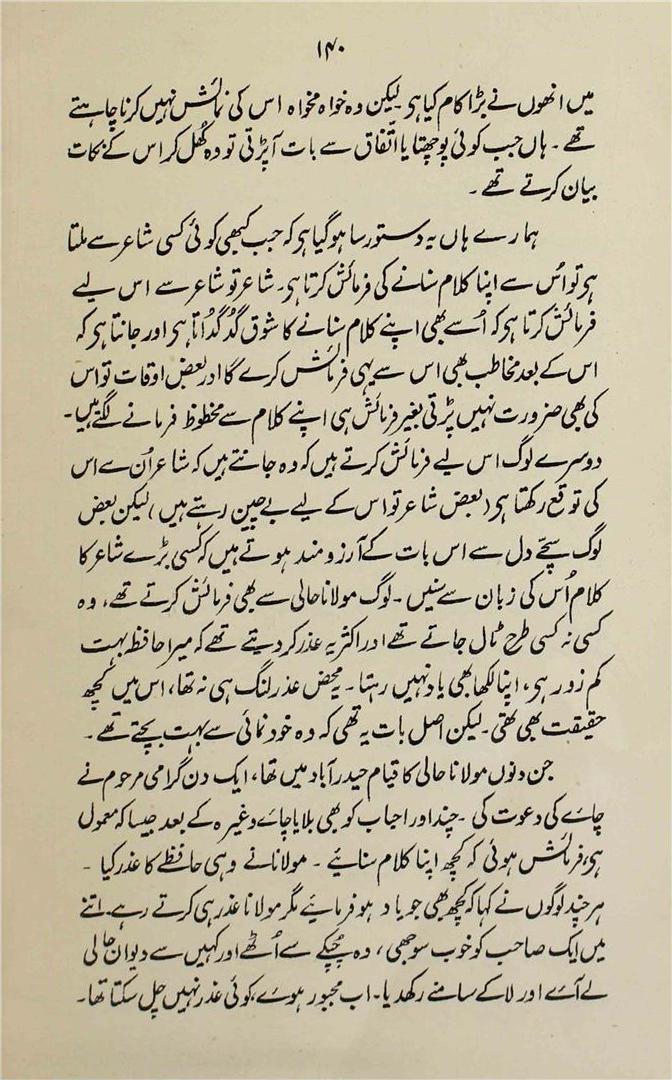 ۱۴۰
میں انھوں نے بڑا کام کیا ہی لیکن وہ خواہ مخواہ اس کی نمائش نہیں کرنا چاہتے
تھے ۔ ہاں جب کوئی پوچھتا یا اتفاق سے بات آپڑتی تو وہ کُھل کر اس کے نکات
بیان کرتے تھے ۔
ہمارے ہاں یہ دستور سا ہوگیا ہی کہ جب کبھی کوئی کسی شاعر سے ملتا
ہی تو اُس سے اپنا کلام سنانے کی فرمائش کرتا ہی۔ شاعر تو شاعر سے اس لیے
فرمائش کرتا ہی کہ اُسے بھی اپنے کلام سنانے کا شوق گُدگُداتا ہی اور جانتا ہی کہ
اس کے بعد مخاطب بھی اس سے یہی فرمائش کرے گا اور بعض اوقات تو اس
کی بھی ضرورت نہیں پڑتی بغیر فرمائش ہی اپنے کلام سے محظوظ فرمانے لگتے ہیں۔
دوسرے لوگ اس لیے فرمائش کرتے ہیں کہ وہ جانتے ہیں کہ شاعر اُن سے اس
کی توقع رکھتا ہی (بعض شاعر تو اس کے لیے بےچین رہتے ہیں) لیکن بعض
لوگ سچّے دل سے اس بات کے آرزومند ہوتے ہیں کہ کسی بڑے شاعر کا
کلام اُس کی زبان سے سنیں ۔ لوگ مولانا حالی سے بھی فرمائش کرتے تھے، وہ
کسی نہ کسی طرح ٹال جاتے تھے اور اکثر یہ عذر کر دیتے تھے کہ میرا حافظہ بہت
کم زور ہی، اپنا لکھا بھی یاد نہیں رہتا ۔ یہ محض عذر لنگ ہی نہ تھا، اس میں کچھ
حقیقت بھی تھی ۔ لیکن اصل بات یہ تھی کہ وہ خود نمائی سے بہت بچتے تھے ۔
جن دنوں مولانا حالی کا قیام حیدرآباد میں تھا، ایک دن گرامی مرحوم نے
چاے کی دعوت کی ۔ چند اور احباب کو بھی بلایا چاے وغیرہ کے بعد جیسا کہ معمول
ہی، فرمائش ہوئی کہ کچھ اپنا کلام سنائیے ۔ مولانا نے وہی حافظے کا عذر کیا ۔
ہر چند لوگوں نے کہا کہ کچھ بھی جو یاد ہو فرمائیے مگر مولانا عذر ہی کرتے رہے۔ اتنے
میں ایک صاحب کو خوب سوجھی، وہ چپکے سے اُٹھے اور کہیں سے دیوان حالی
لے آے اور لا کے سامنے رکھ دیا۔ اب مجبور ہوے، کوئی عذر نہیں چل سکتا تھا۔